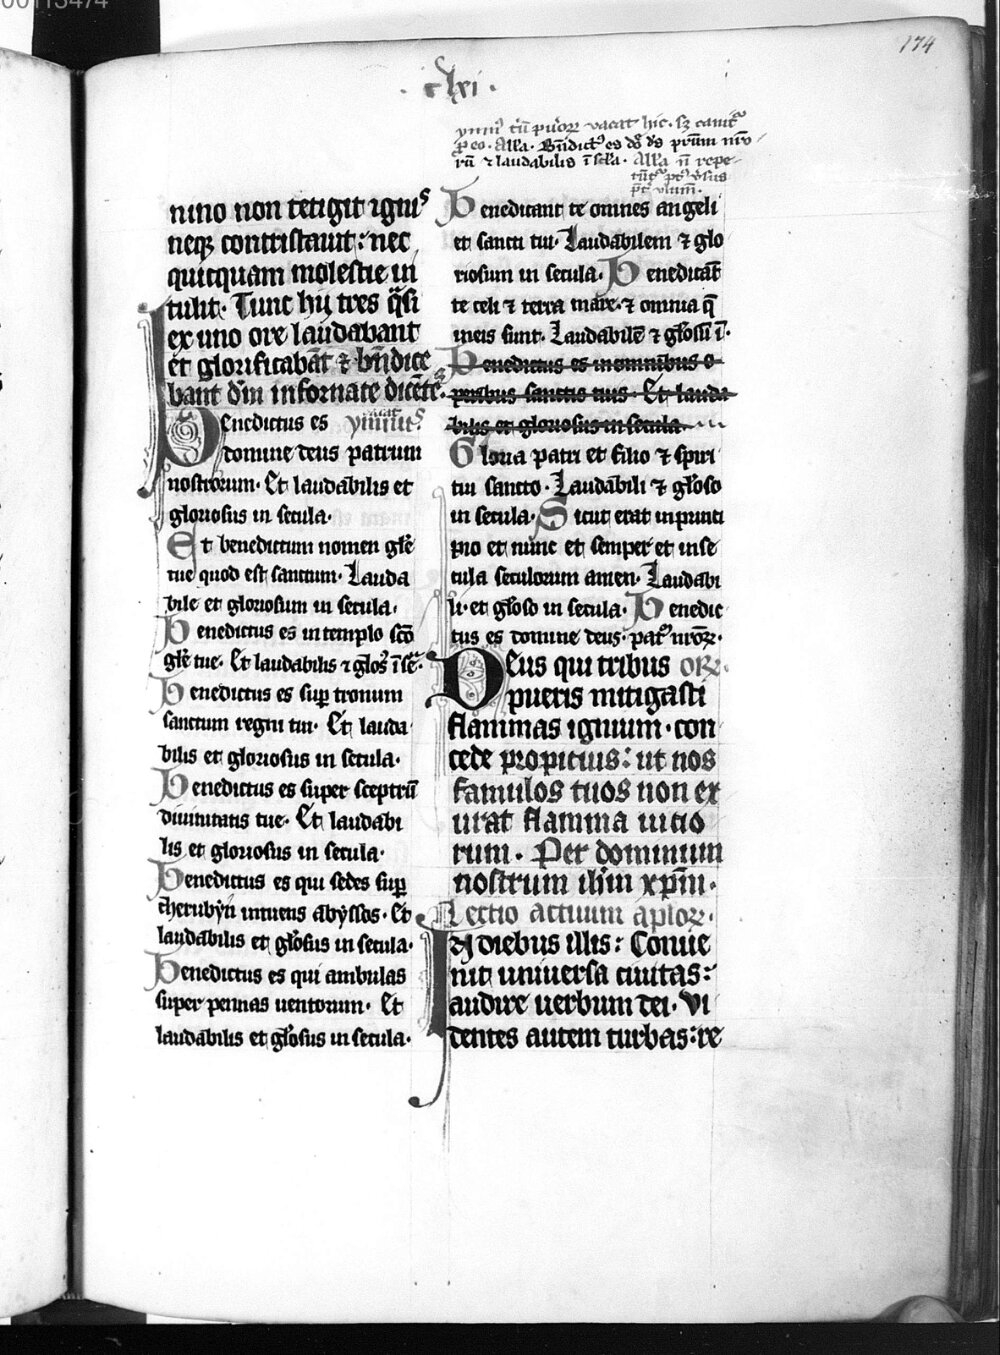 00113474
174
· clxi ·
ymn9 triū puerorū vacat hic · sꝫ canit᷑
p eo · Alła · Bn̄dictꝰ es dn̄e ds patrum nr̄o
rū ⁊ laudabilis ī scła · Alła nō repe-
tūt᷑ pꝰ v̓sus
nino non tetigit ignis
neqꝫ contristauit : nec
quicquam molestie in
tulit · Tunc hij tres q̄si
ex uno ore laudabant
et glorificabāt ⁊ bn̄dice
bant dn̄m in fornace dicētes ·
Benedictus es ymnus vacat
domine deus patrum
nostrorum · Et laudābilis et
gloriosus in secula ·
Et benedictum nomen glīe
tue quod est sanctum · Lauda
bile et gloriosum in secula ·
Benedictus es in templo scō
glīe tue · Et laudabilis ⁊ glōs9 ī sc̄la ·
Benedictus es sup tronum
sanctum regni tui · Et lauda
bilis et gloriosus in secula ·
Benedictus es super sceptrū
diuinitatis tue · Et laudabi
lis et gloriosus in secula ·
Benedictus es qui sedes sup
cherubyn intuens abyssos · Et
laudabilis et glōsus in secula ·
Benedictus es qui ambulas
super pennas uentorum · Et
laudābilis et glōsus in secula ·
Benedicant te omnes angeli
et sancti tui · Laudabilem ⁊ glo
riosum in secula · Benedicāt
te celi ⁊ terra mare · ⁊ omnia q̄
in eis sunt · Laudabilē ⁊ glōsū ī ·
Benedictus es in omnibus o
peribus sanctis tuis · Et lauda
bilis et gloriosus in secula
Gloria patri et filio ⁊ spiri
tui sancto · Laudabili ⁊ glōso
in secula · Sicut erat in princi
pio et nunc et semper et in se
cula seculorum amen · Laudabi
li · et glōso in secula · Benedic
tus es domine deus · pat᷑ nrōꝝ ·
Deus qui tribus orꝝ ·
pueris mitigasti
flammas ignium · con
cede propicius : ut nos
famulos tuos non ex
urat flamma uicio
rum · Per dominum
nostrum ihm̄ xpm̄ ·
Lectio actuum aploꝝ ·
In diebus illis : Conue
nit uniuersa ciuitas :
audire uerbum dei · Vi
dentes autem turbas : re